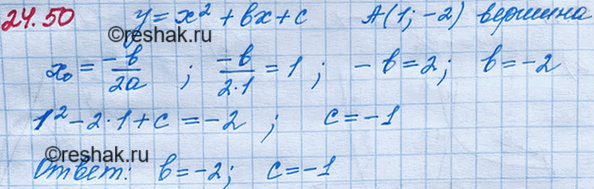 24.50 y = x² + bx + c A(1; -2) вершина
©reshak.ru
x₀ = -b/2a ; -b/2·1 = 1 ; -b = 2; b = -2
1² - 2·1 + c = -2 ; c = -1
©reshak.ru
Ответ: b = -2; c = -1